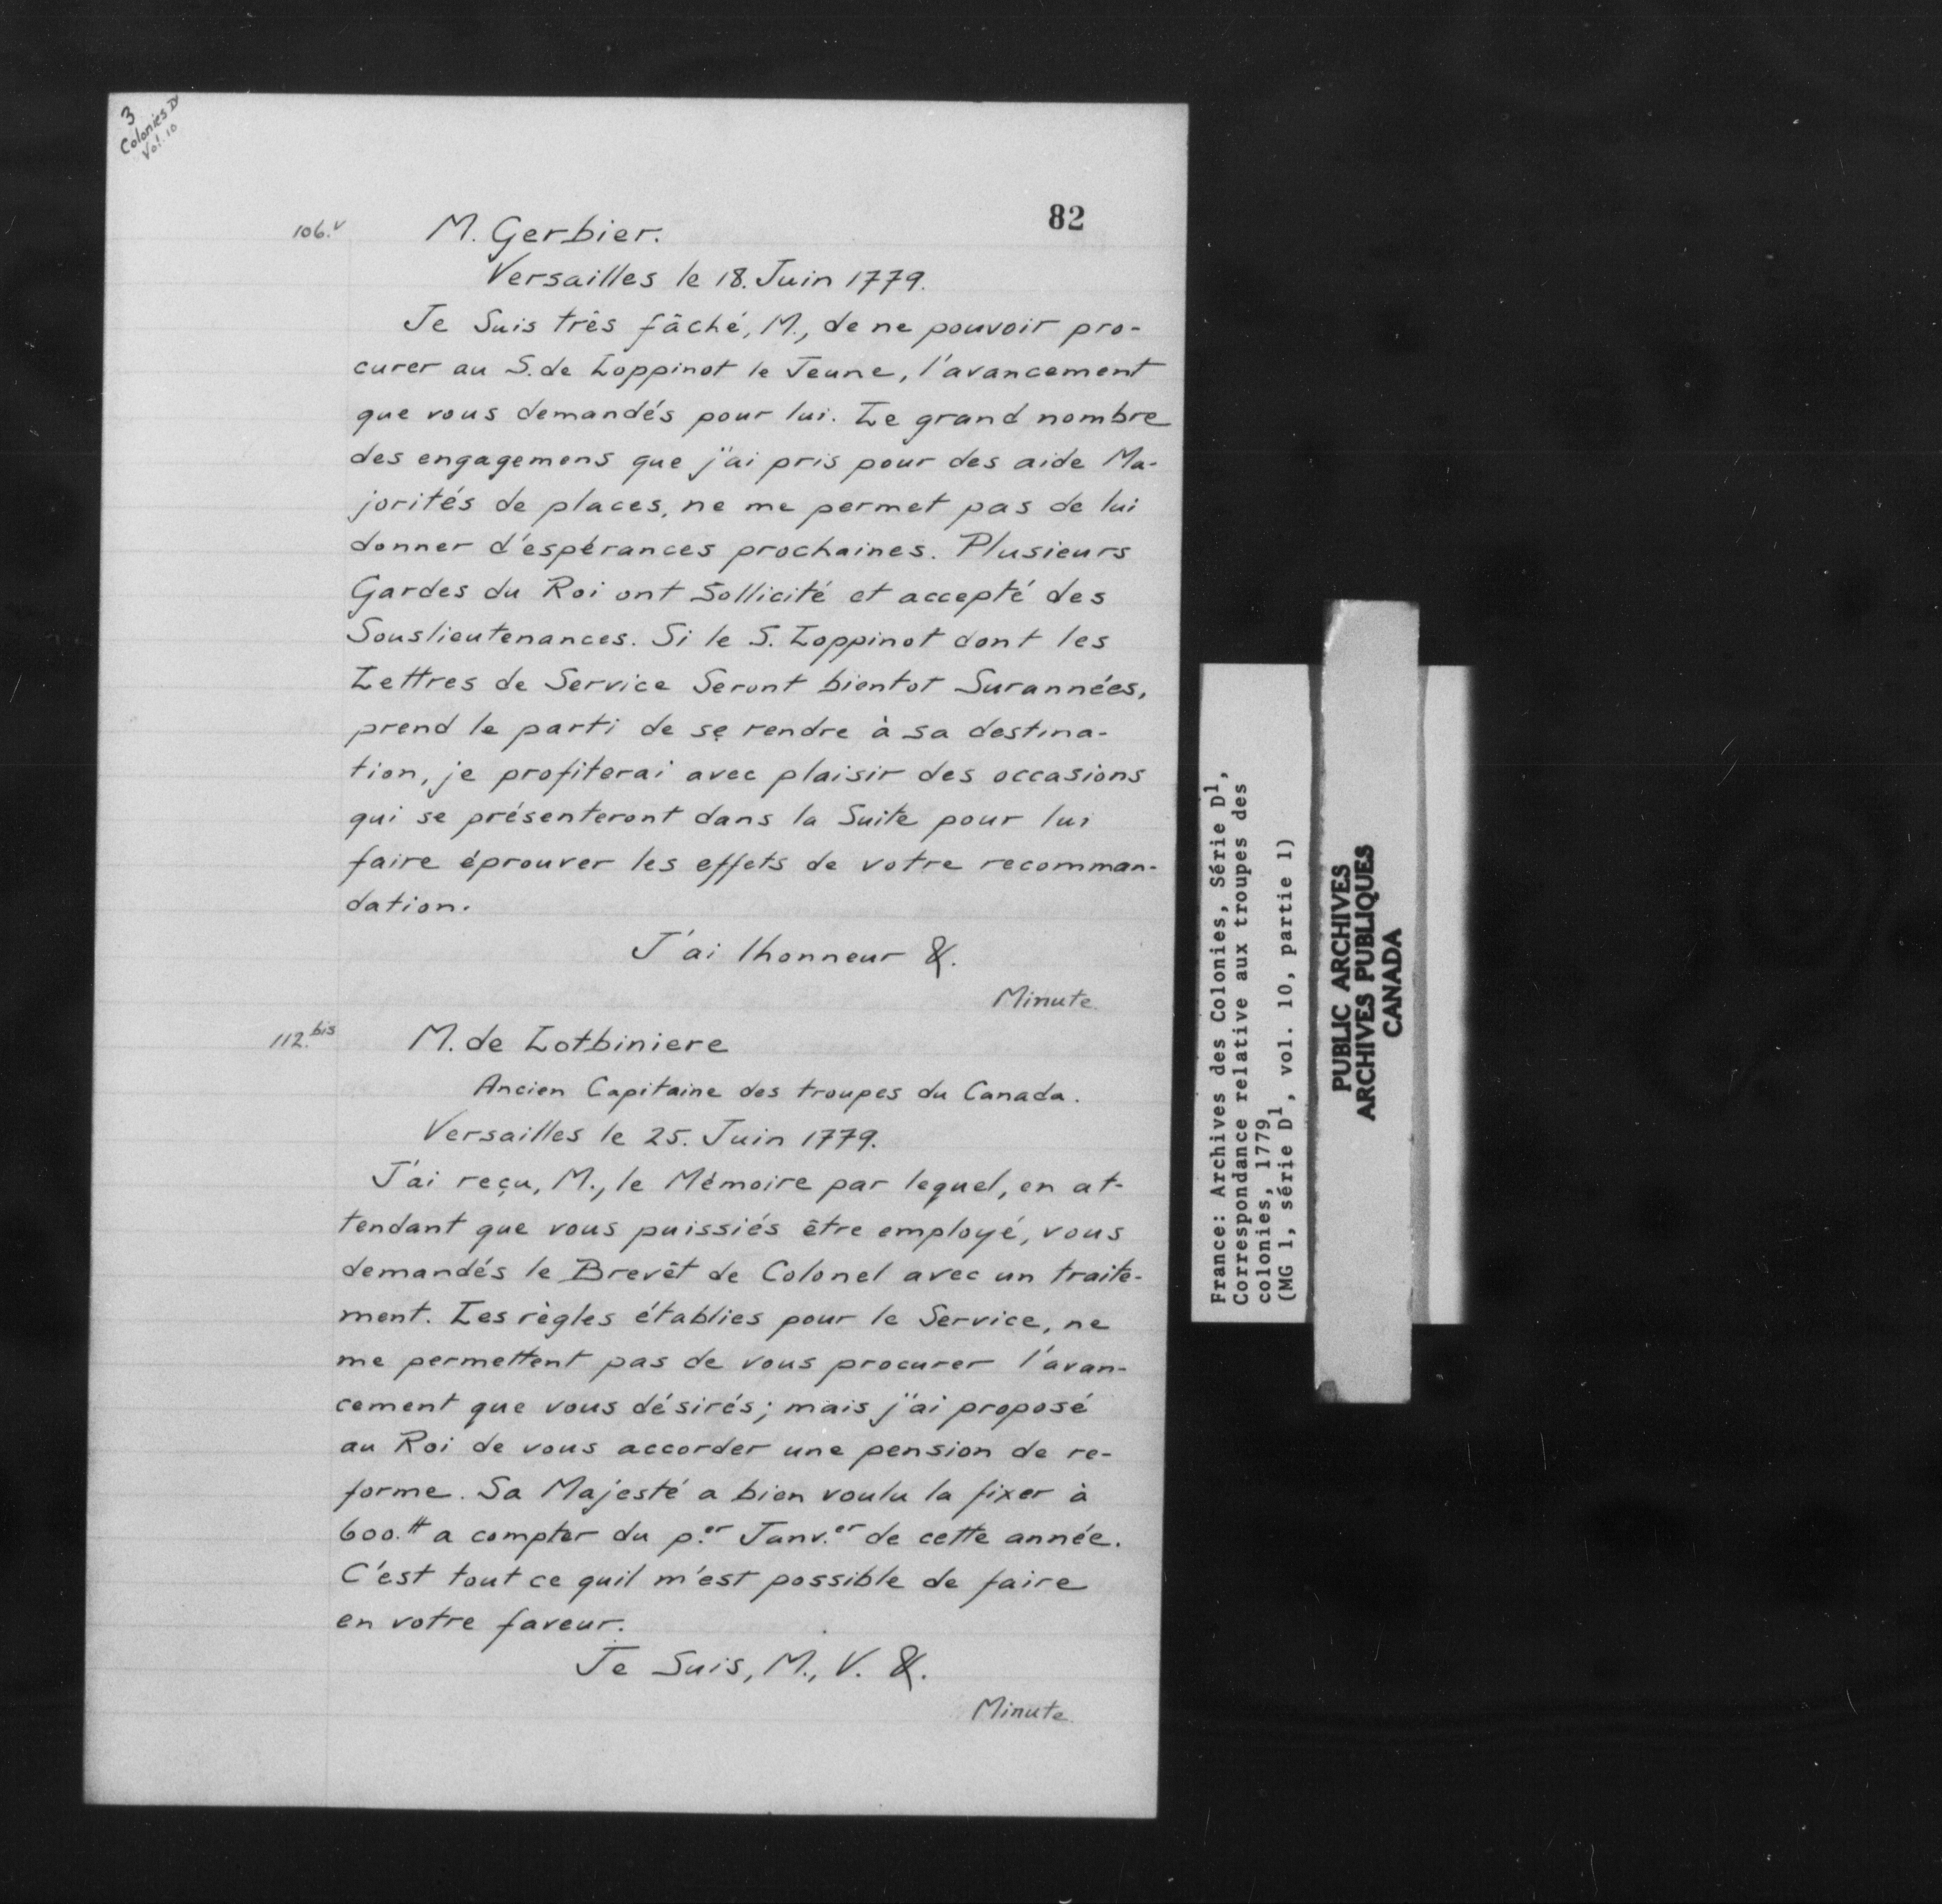 3
Colonies D1
Vol. 10
82
106.v
M. Gerbier.
Versailles le 18. Juin 1779.
Je Suis très fâché, M., de ne pouvoir pro-
curer au S. de Loppinot le Jeune, l'avancement
que vous demandés pour lui. Le grand nombre
des engagemens que j'ai pris pour des aide Ma-
jorités de places, ne me permet pas de lui
donner d'espérances prochaines. Plusieurs
Gardes du Roi ont Sollicité et accepté des
Souslieutenances. Si le S. Loppinot dont les
Lettres de Service Seront bientot Surannées,
prend le parti de se rendre à sa destina-
tion, je profiterai avec plaisir des occasions
qui se présenteront dans la Suite pour lui
faire éprouver les effets de votre recomman-
dation.
J'ai lhonneur &.
Minute
112.bis
M. de Lotbiniere
Ancien Capitaine des troupes du Canada.
Versailles le 25. Juin 1779.
J'ai reçu, M., le Mémoire par lequel, en at-
tendant que vous puissiés être employé, vous
demandés le Brevêt de Colonel avec un traite-
ment. Les règles établies pour le Service, ne
me permettent pas de vous procurer l'avan-
cement que vous désirés; mais j'ai proposé
au Roi de vous accorder une pension de re-
forme. Sa Majesté a bien voulu la fixer à
600.tt a compter du p.er Janv.er de cette année.
C'est tout ce quil m'est possible de faire
en votre faveur.
Je Suis, M., V. &.
Minute
France: Archives des Colonies, Série D1,
Correspondance relative aux troupes des
colonies, 1779
(MG 1, série D1, vol. 10, partie 1)
PUBLIC ARCHIVES
ARCHIVES PUBLIQUES
CANADA